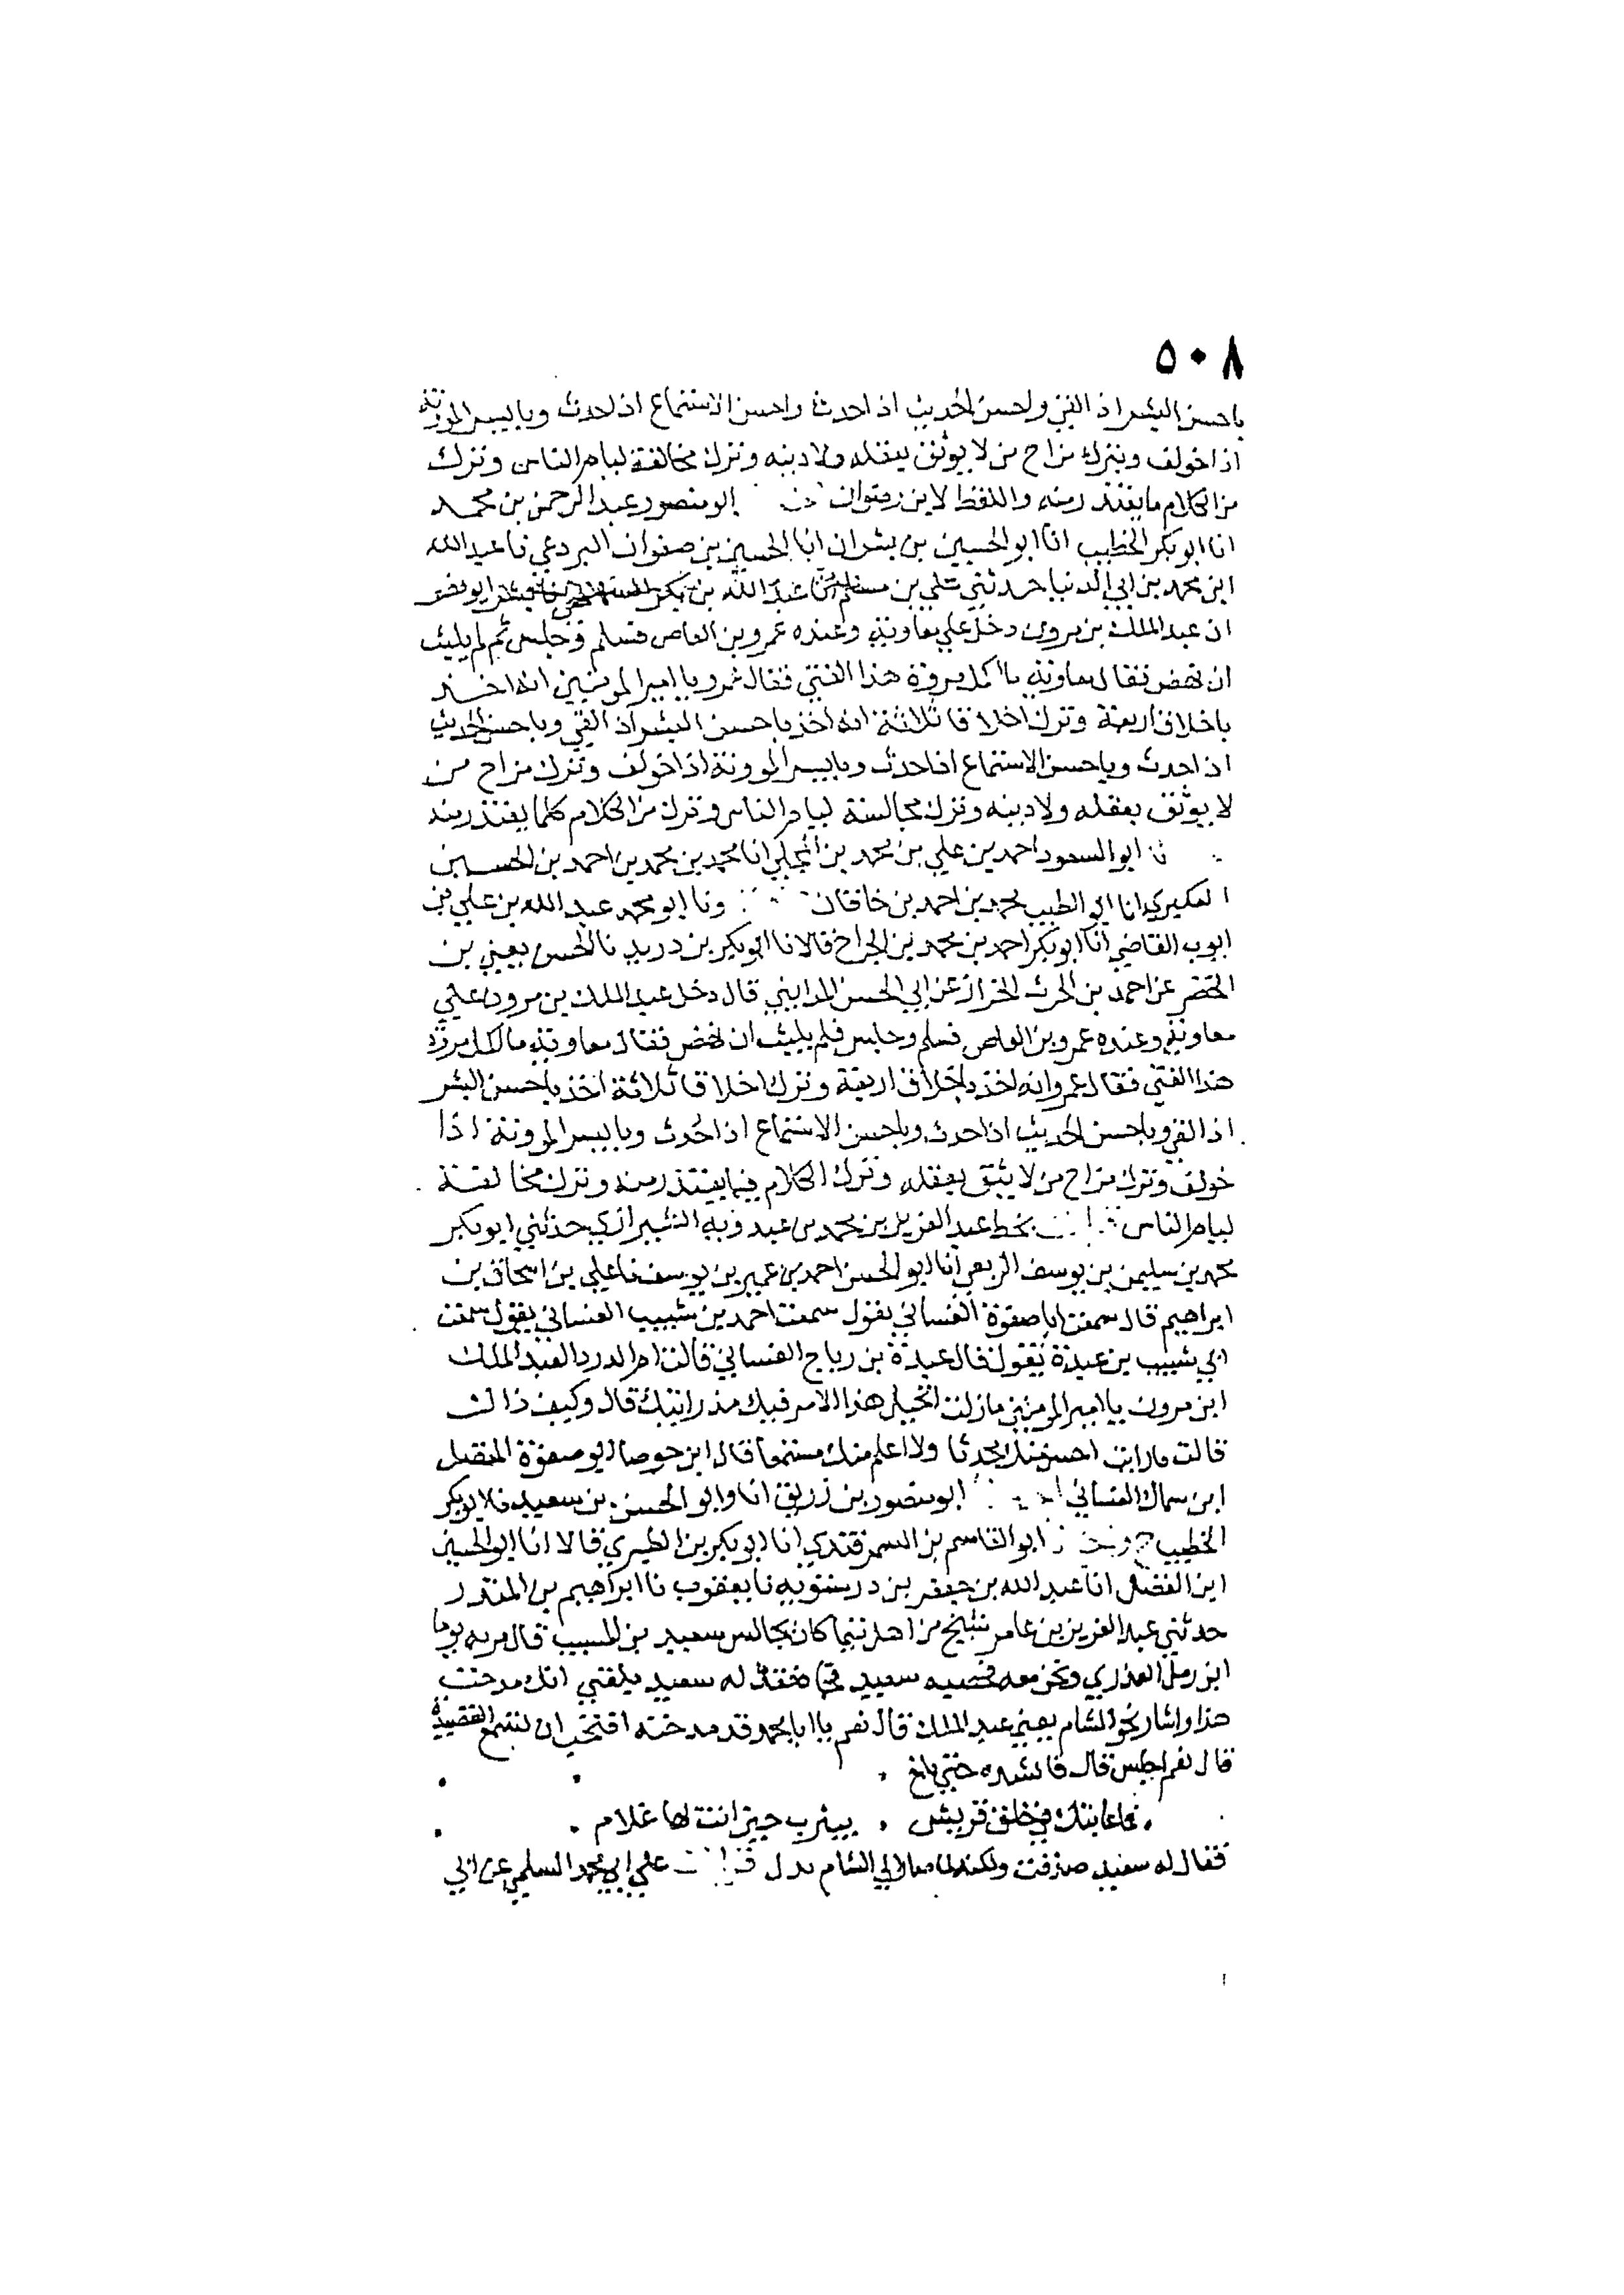 ٥٠٨
باحسن البشر اذ القي ولحسن الحديث اذا حدث واحسن الاستماع اذا حدث وبايسر المؤنة
اذا خولف ويترك مزاح من لا يوثق بعقله ولا دينه وترك مخالفة ليام الناس وترك
من الكلام ما يعتذر منه واللفظ لابن رضوان ابو منصور عبد الرحمن بن محمد
انا ابو بكر الخطيب انا ابو الحسين بن بشران انا الحسين بن صفوان البردعي نا عبد الله
ابن محمد بن ابي الدنيا حدثني علي بن مسلم نا عبد الله بن بكر السهمي ابو نصر
ان عبد الملك بن مرون دخل علي معاوية وعنده عمرو بن العاص فسلم وجلس ثم لم يلبث
ان نهض فقال معاوية ما اكمل مروة هذا الفتي فقال عمرو يا امير المومنين انه اخذ
باخلاق اربعة وترك اخلاقا ثلاثة انه اخذ باحسن البشر اذ القي وباحسن الحديث
اذا حدث وباحسن الاستماع اذا حدث وبايسر المؤونة اذا خولف وترك مزاح من
لا يوثق بعقله ولا دينه وترك مجالسة ليام الناس وترك من الكلام كلما يعتذر منه
نا ابو السعود احمد بن علي بن محمد بن المجلي انا محمد بن محمد بن احمد بن الحسين
العكبري انا ابو الطيب محمد بن احمد بن خاقان ونا ابو محمد عبد الله بن علي بن
ايوب القاضي انا ابو بكر احمد بن محمد بن الجراح قالا نا ابو بكر بن دريد نا الحسن يعني بن
الخضر عن احمد بن الحرث الخراز عن ابي الحسن المدايني قال دخل عبد الملك بن مرون علي
معاوية وعنده عمرو بن العاص فسلم وجلس فلم يلبث ان نهض فقال معاوية ما اكمل مروة
هذا الفتي فقال عمرو انه اخذ باخلاق اربعة وترك اخلاقا ثلاثة اخذ باحسن البشر
اذا لقي وباحسن الحديث اذا حدث وباحسن الاستماع اذا حُدث وبايسر المؤونة اذا
خولف وترك مزاح من لا يثق بعقله وترك الكلام فيما يعتذر منه وترك مخالفة
ليام الناس بخط عبد العزيز بن محمد بن عبدويه الشيرازي حدثني ابو بكر
محمد بن سليمن بن يوسف الربعي انا ابو الحسن احمد بن عمير بن يوسف نا علي بن اسحاق بن
ابراهيم قال سمعت ابا صفوة الغساني يقول سمعت احمد بن شبيب الغساني يقول سمعت
ابي شبيب بن عبدة يقول قال عبدة بن رباح الغساني قالت ام الدردا لعبد الملك
ابن مرون يا امير المومنين مازلت اتخيل هذا الامر فيك مذ رايتك قال وكيف ذاك
قالت ما رايت احسن منك محدثا ولا اعلم منك مستمعا قال ابن جوصا ابو صفوة المفضل
ابن سماك الغساني ابو منصور بن زريق انا وابو الحسن بن سعيد نا ابو بكر
الخطيب ح ابو القاسم بن السمرقندي انا ابو بكر بن الطبري قالا انا ابو الحسين
ابن الفضل انا عبد الله بن جعفر بن درستويه نا يعقوب نا ابراهيم بن المنذر
حدثني عبد العزيز بن عامر شيخ من اهل تيما كان يجالس سعيد بن المسيب قال مر به يوما
ابن رمل العذري ونحن معه فحصبه سعيد فقال له سعيد بلغني انك مدحت
هذا واشار نحو الشام يعني عبد الملك قال نعم يا ابا محمد قد مدحته افتحب ان تسمع القصيدة
قال نعم اجلس قال فانشده حتي بلغ
فما عابتك في خلق قريش . بيثرب حين انت لها غلام
فقال له سعيد صدقت ولكنه لما صار الي الشام بدل قرات علي ابي محمد السلمي عن ابي